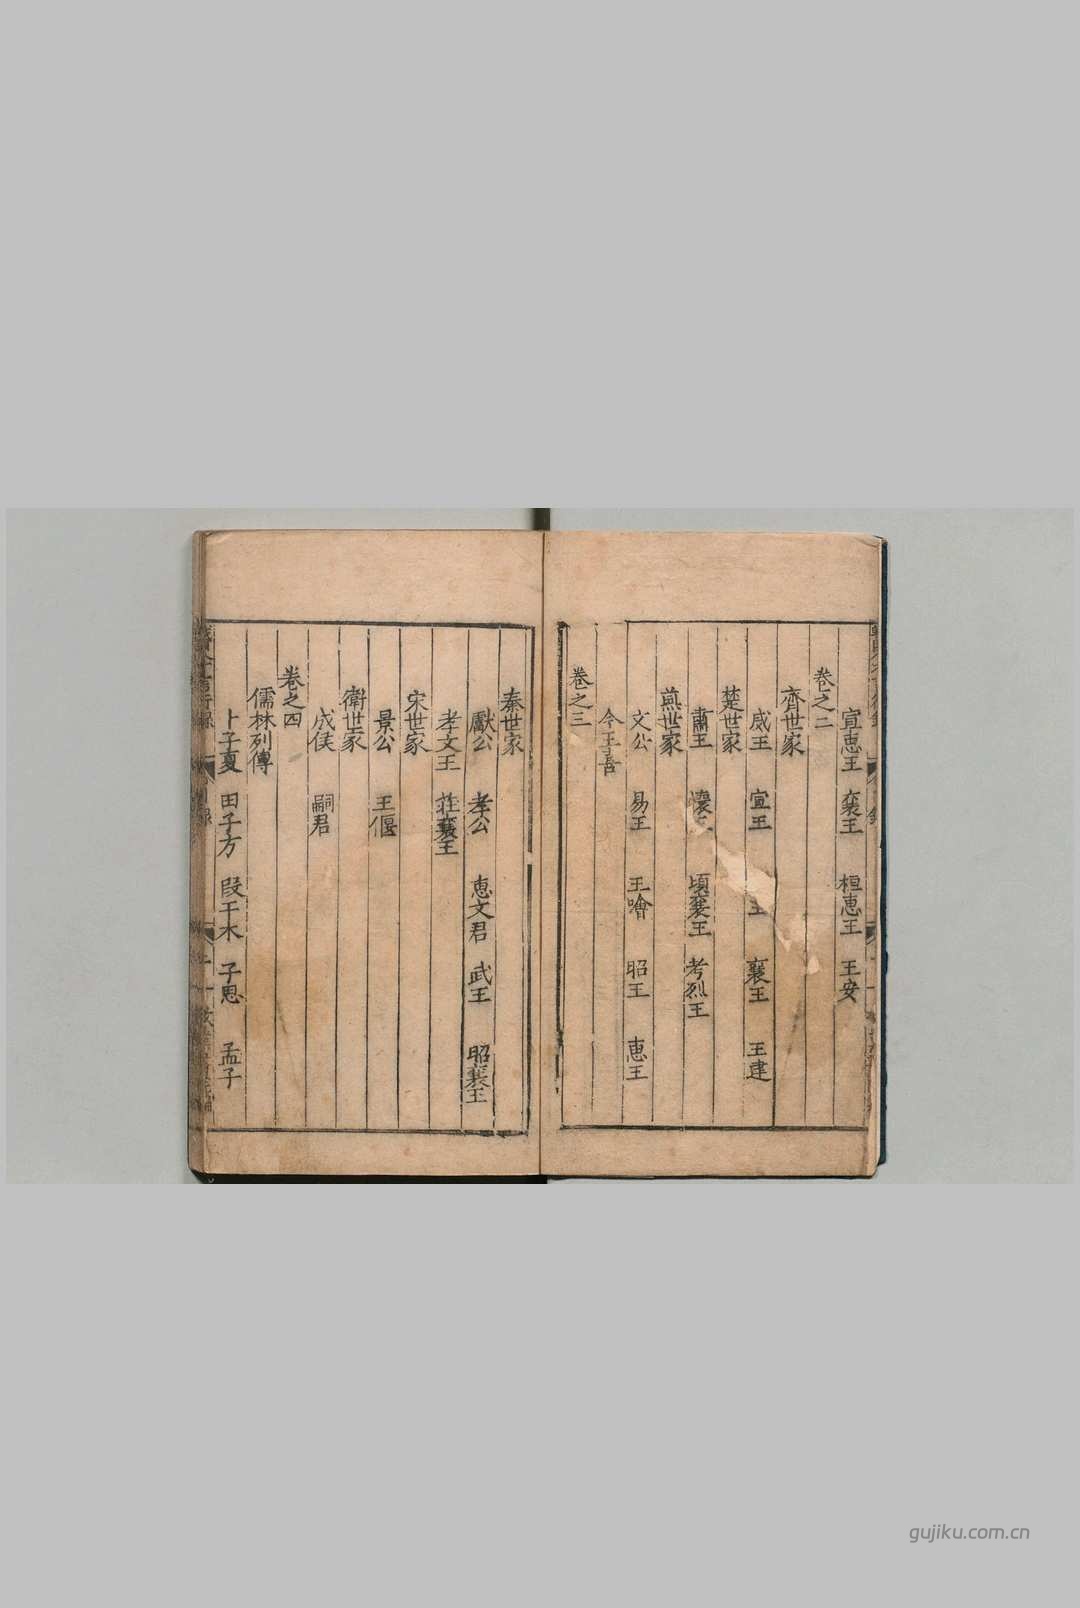 宣惠王 襄王 桓惠王 王安
卷之二
齊世家
威王 宣王 王 襄王 王建
楚世家
肅王 懷 頃襄王 考烈王
燕世家
文公 易王 王噲 昭王 惠王
今王喜
卷之三
秦世家
獻公 孝公 惠文君 武王 昭襄王
孝文王 莊襄王
宋世家
景公 王偃
衛世家
成侯 嗣君
卷之四
儒林列傳
卜子夏 田子方 段干木 子思 孟子
gujiku.com.cn